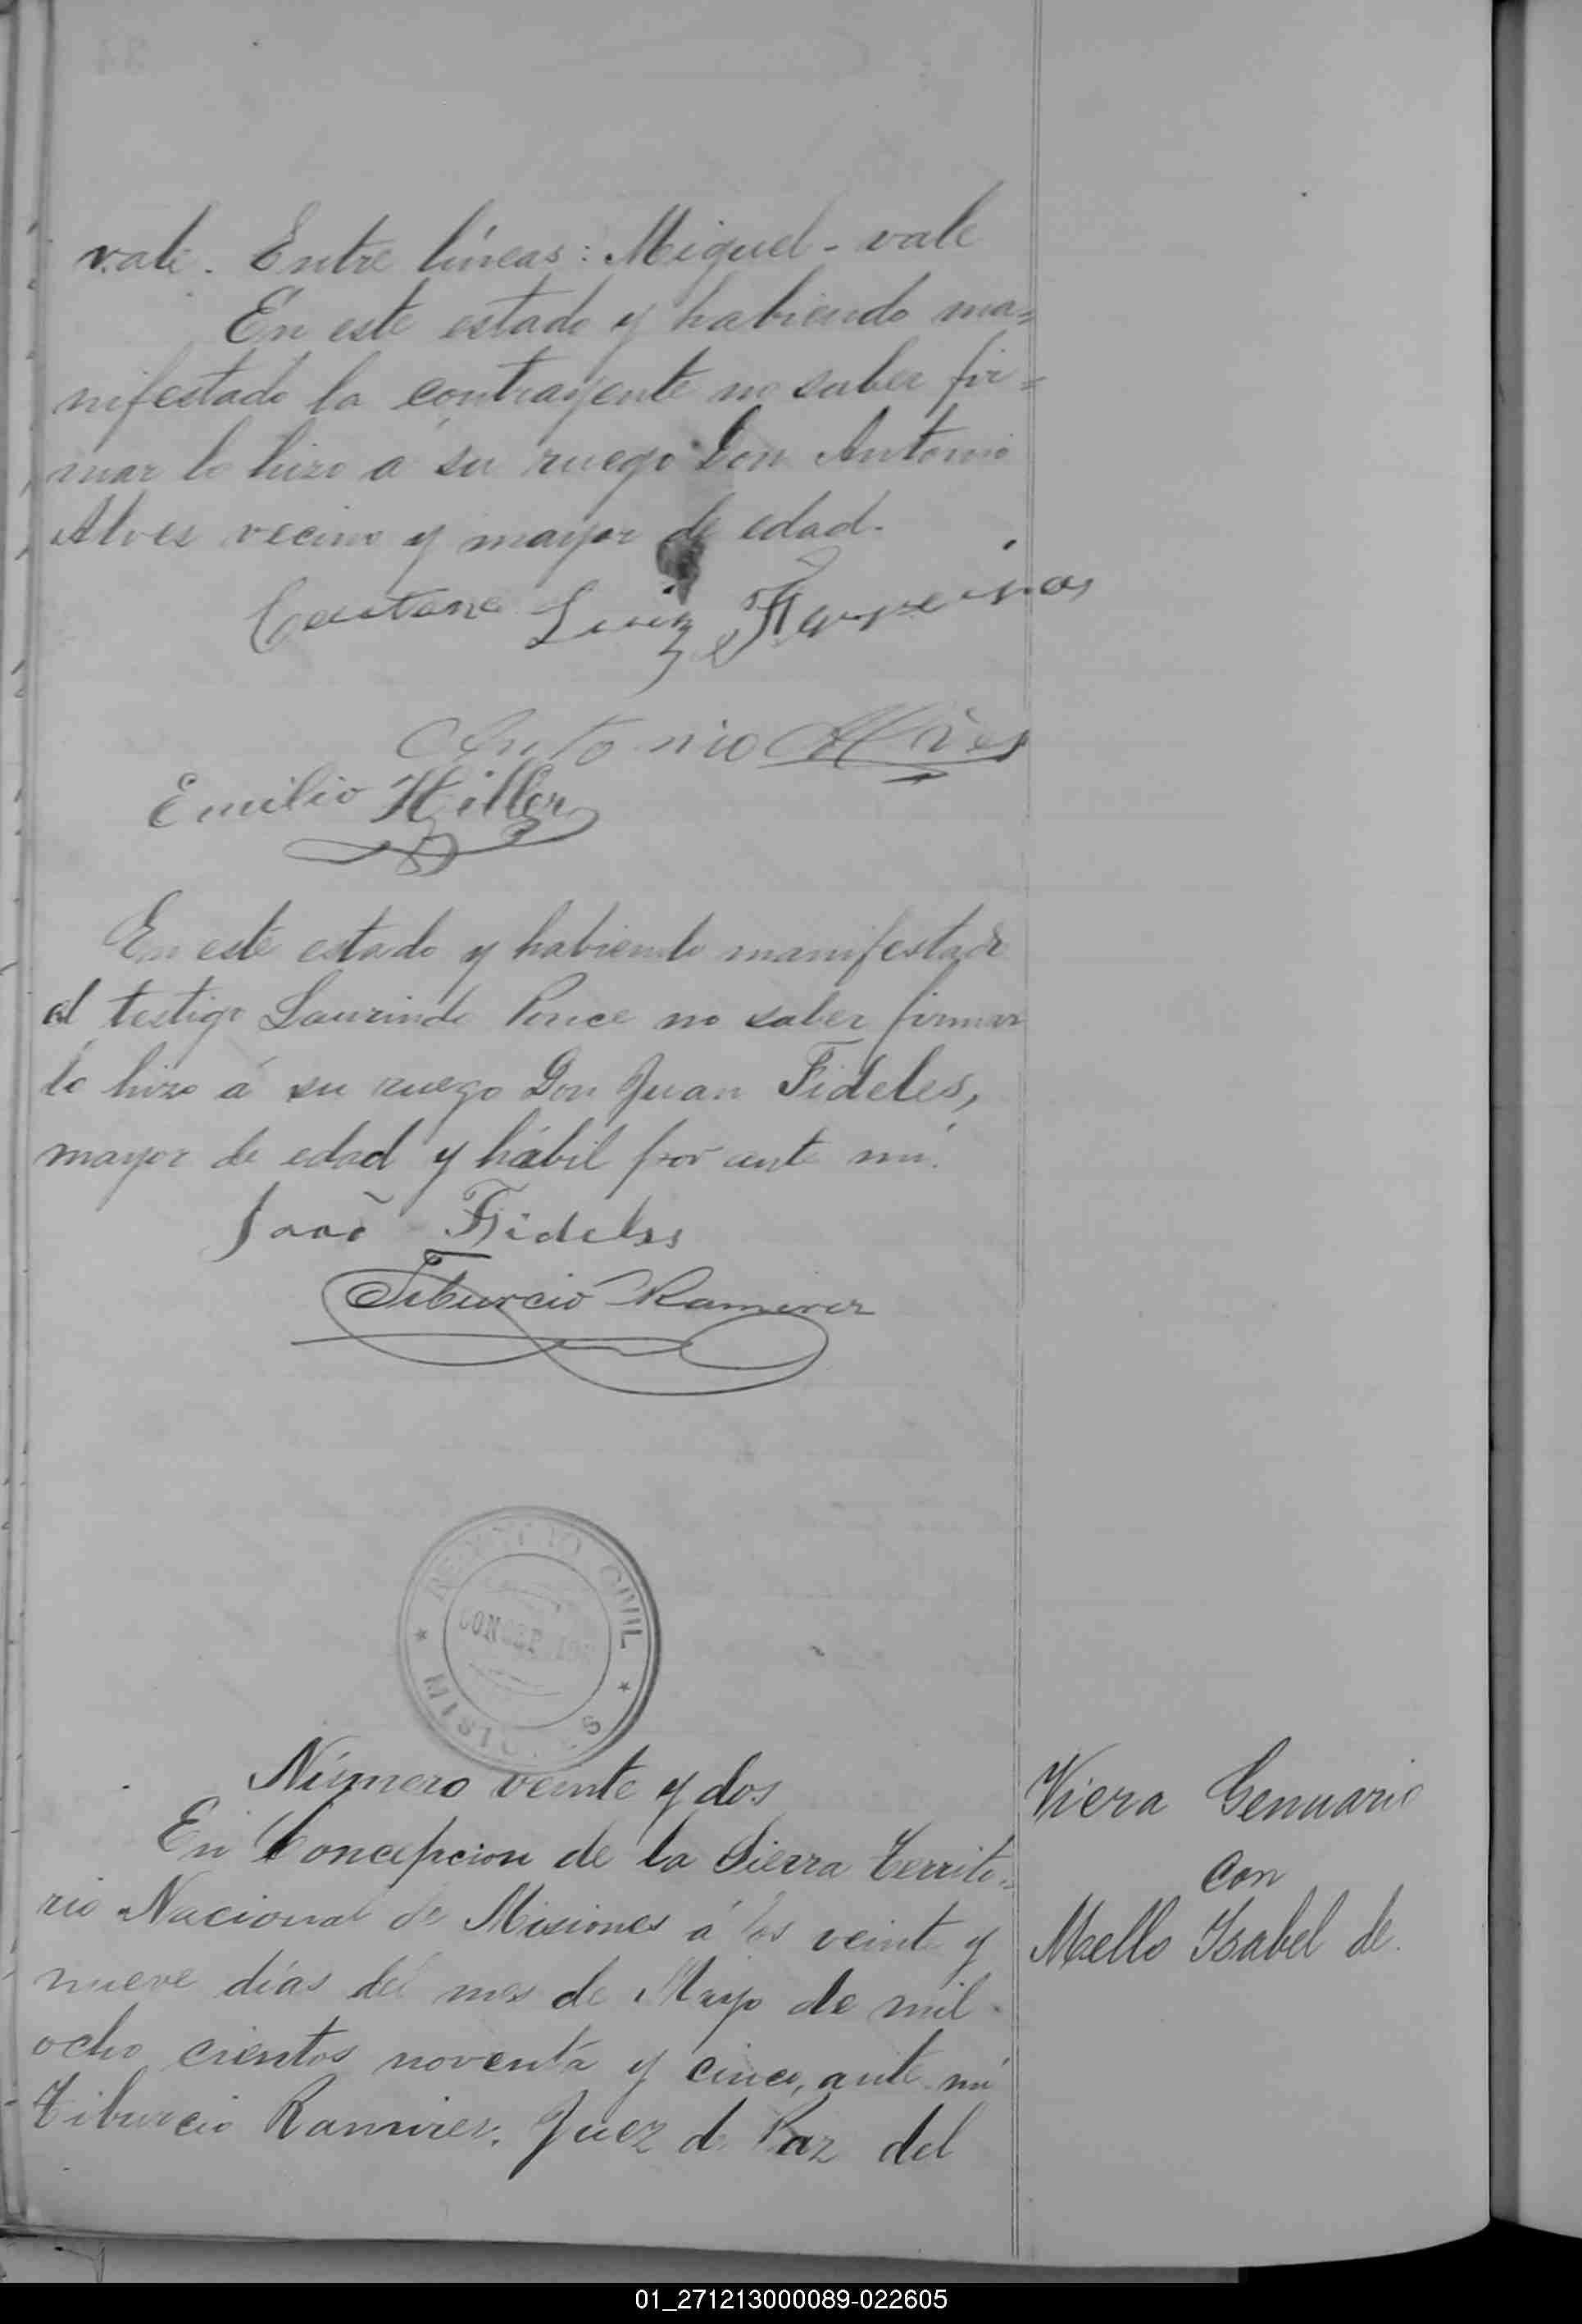 vale. Entre líneas: Miguel - vale
En este estado y habiendo ma=
nifestado la contrayente no saber fir=
mar lo hizo á su ruego Don Antonio
Alves vecino y mayor de edad.
Luiz
Antonio Alves
Emilio Hiller
En este estado y habiendo manifestado
el testigo Laurindo Ponce no saber firmar
lo hizo á su ruego Don Juan Fideles,
mayor de edad y hábil por ante mí.
Joaõ Fideles
Tiburcio Ramirez
REGISTRO CIVIL
CONCEPCION
MISIONES
Número veinte y dos
En Concepcion de la Sierra Territo=
rio Nacional de Misiones á los veinte y
nueve días del mes de Mayo de mil
ocho cientos noventa y cinco, ante mí
Tiburcio Ramirez, Juez de Paz del
Viera Genuario
con
Mello Isabel de.
01_271213000089-022605